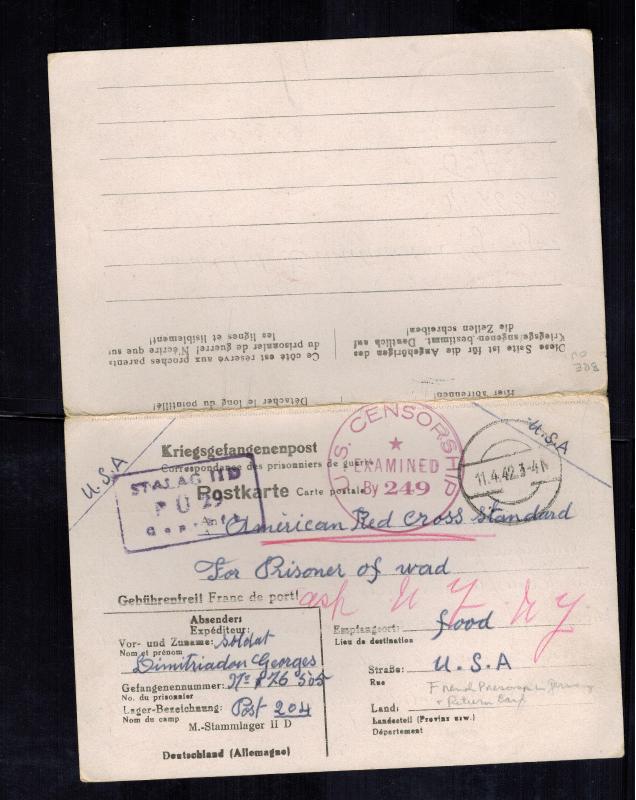 Ce côté est réservé aux proches parents
du prisonnier de guerre! N'écrire que sur
les lignes et lisiblement!
Diese Seite ist für die Angehörigen des
Kriegsgefangenen bestimmt. Deutlich auf
die Zeilen schreiben!
Détacher le long du pointillé!
Hier abtrennen
U.S.A
Kriegsgefangenenpost
Correspondance des prisonniers de guerre
U.S. CENSORSHIP
EXAMINED
By 249
11.4.42.3-4
U.S.A
STALAG IID
Geprüft
Postkarte Carte postale
American Red Cross Standard
For Prisoner of
Gebührenfrei! Franc de port!
N Y N Y
Absender:
Expéditeur:
Vor- und Zuname: Soldat
Nom et prénom
Dimitriadon Georges
Gefangenennummer: Nº 876 505
No. du prisonnier
Lager-Bezeichnung: Post 204
Nom du camp
M.-Stammlager II D
Deutschland (Allemagne)
Empfangsort: food
Lieu de destination
Straße: U.S.A
Rue
French Prisoner in Germany
+ Return Card
Land:
Landesteil (Provinz usw.)
Département